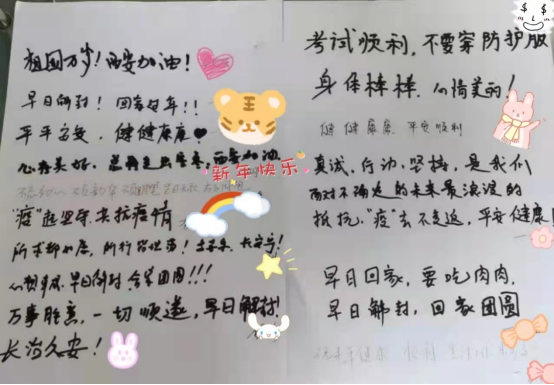 祖国万岁！西安加油！
早日解封！回家过年！！
平平安安、健健康康
心存美好、
西安加油
新年快乐
"疫"起坚守 去抗疫情
所求都如愿，所行皆坦途！
早日解封 合家团圆！！！
万事胜意，一切顺遂，早日解封！
长治久安！
考试顺利，不要穿防护服
身体棒棒、心情美的！
健健康康 平安顺利
真诚、行动、坚持，是我们
面对不确定的未来最浪漫的
抵抗，"疫"去不复返，平安健康！
早日回家，要吃肉肉，
早日解封，回家团圆